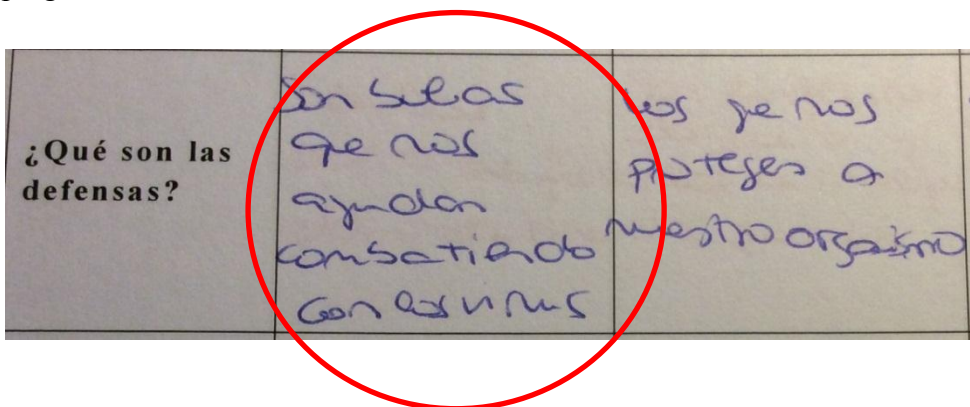 ¿Qué son las
defensas?
Son selas
que nos
ayudan
combatiendo
con los virus
los que nos
proteges a
nuestro orgaismo